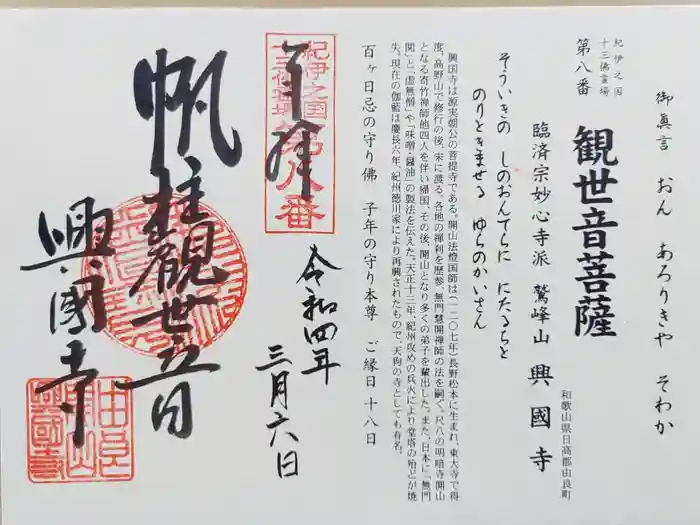 御真言　おん　あろりきや　そわか
紀伊之国
十三佛霊場
第八番
観世音菩薩
臨済宗妙心寺派　鷲峰山　興國寺
和歌山県日高郡由良町
そういきの　しのおんてらに　にたるらと
のりときませる　ゆらのかいさん
興国寺は源実朝公の菩提寺である。開山法燈国師は(一二〇七年)長野松本に生まれ、東大寺で得
度、高野山で修行の後、宋に渡る。各地の禅刹を歴参、無門慧開禅師の法を嗣ぐ。尺八の明暗寺開山
となる寄竹禅師他四人を伴い帰国。その後、開山となり多くの弟子を輩出した。また、日本に「無門
関」と「虚無僧」や「味噌・醤油」の製法を伝えた。天正十三年、紀州攻めの兵火により堂塔の殆どが焼
失、現在の伽藍は慶長六年、紀州徳川家により再興されたもので、天狗の寺としても有名。
百ヶ日忌の守り佛　子年の守り本尊　ご縁日　十八日
紀伊之国
十三佛霊場
第八番
奉拝
令和四年
三月六日
帆柱観世音
興國寺
由良
開山
興國寺